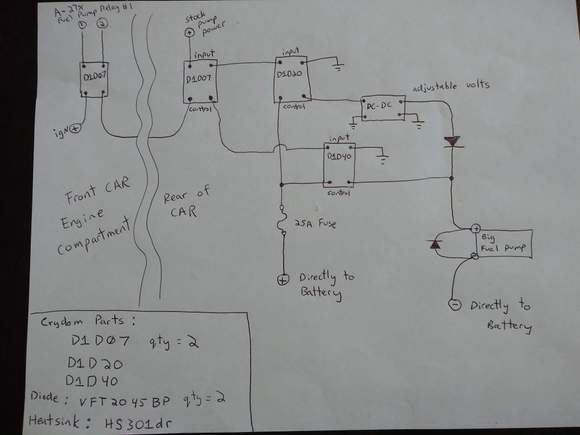 A-27x
Fuel Pump Relay #1
1 2
stock
pump
power
+
input
D1D07
control
input
D1D20
control
D1D07
ign +
adjustable volts
DC-DC
+ +
- -
input
D1D40
control
Front CAR
Engine
Compartment
Rear of
CAR
25A Fuse
+ Directly to
Battery
+
Big
Fuel Pump
-
- Directly to
Battery
Crydom Parts:
D1D07 qty = 2
D1D20
D1D40
Diode: VFT2045BP qty = 2
Heatsink: HS301dr